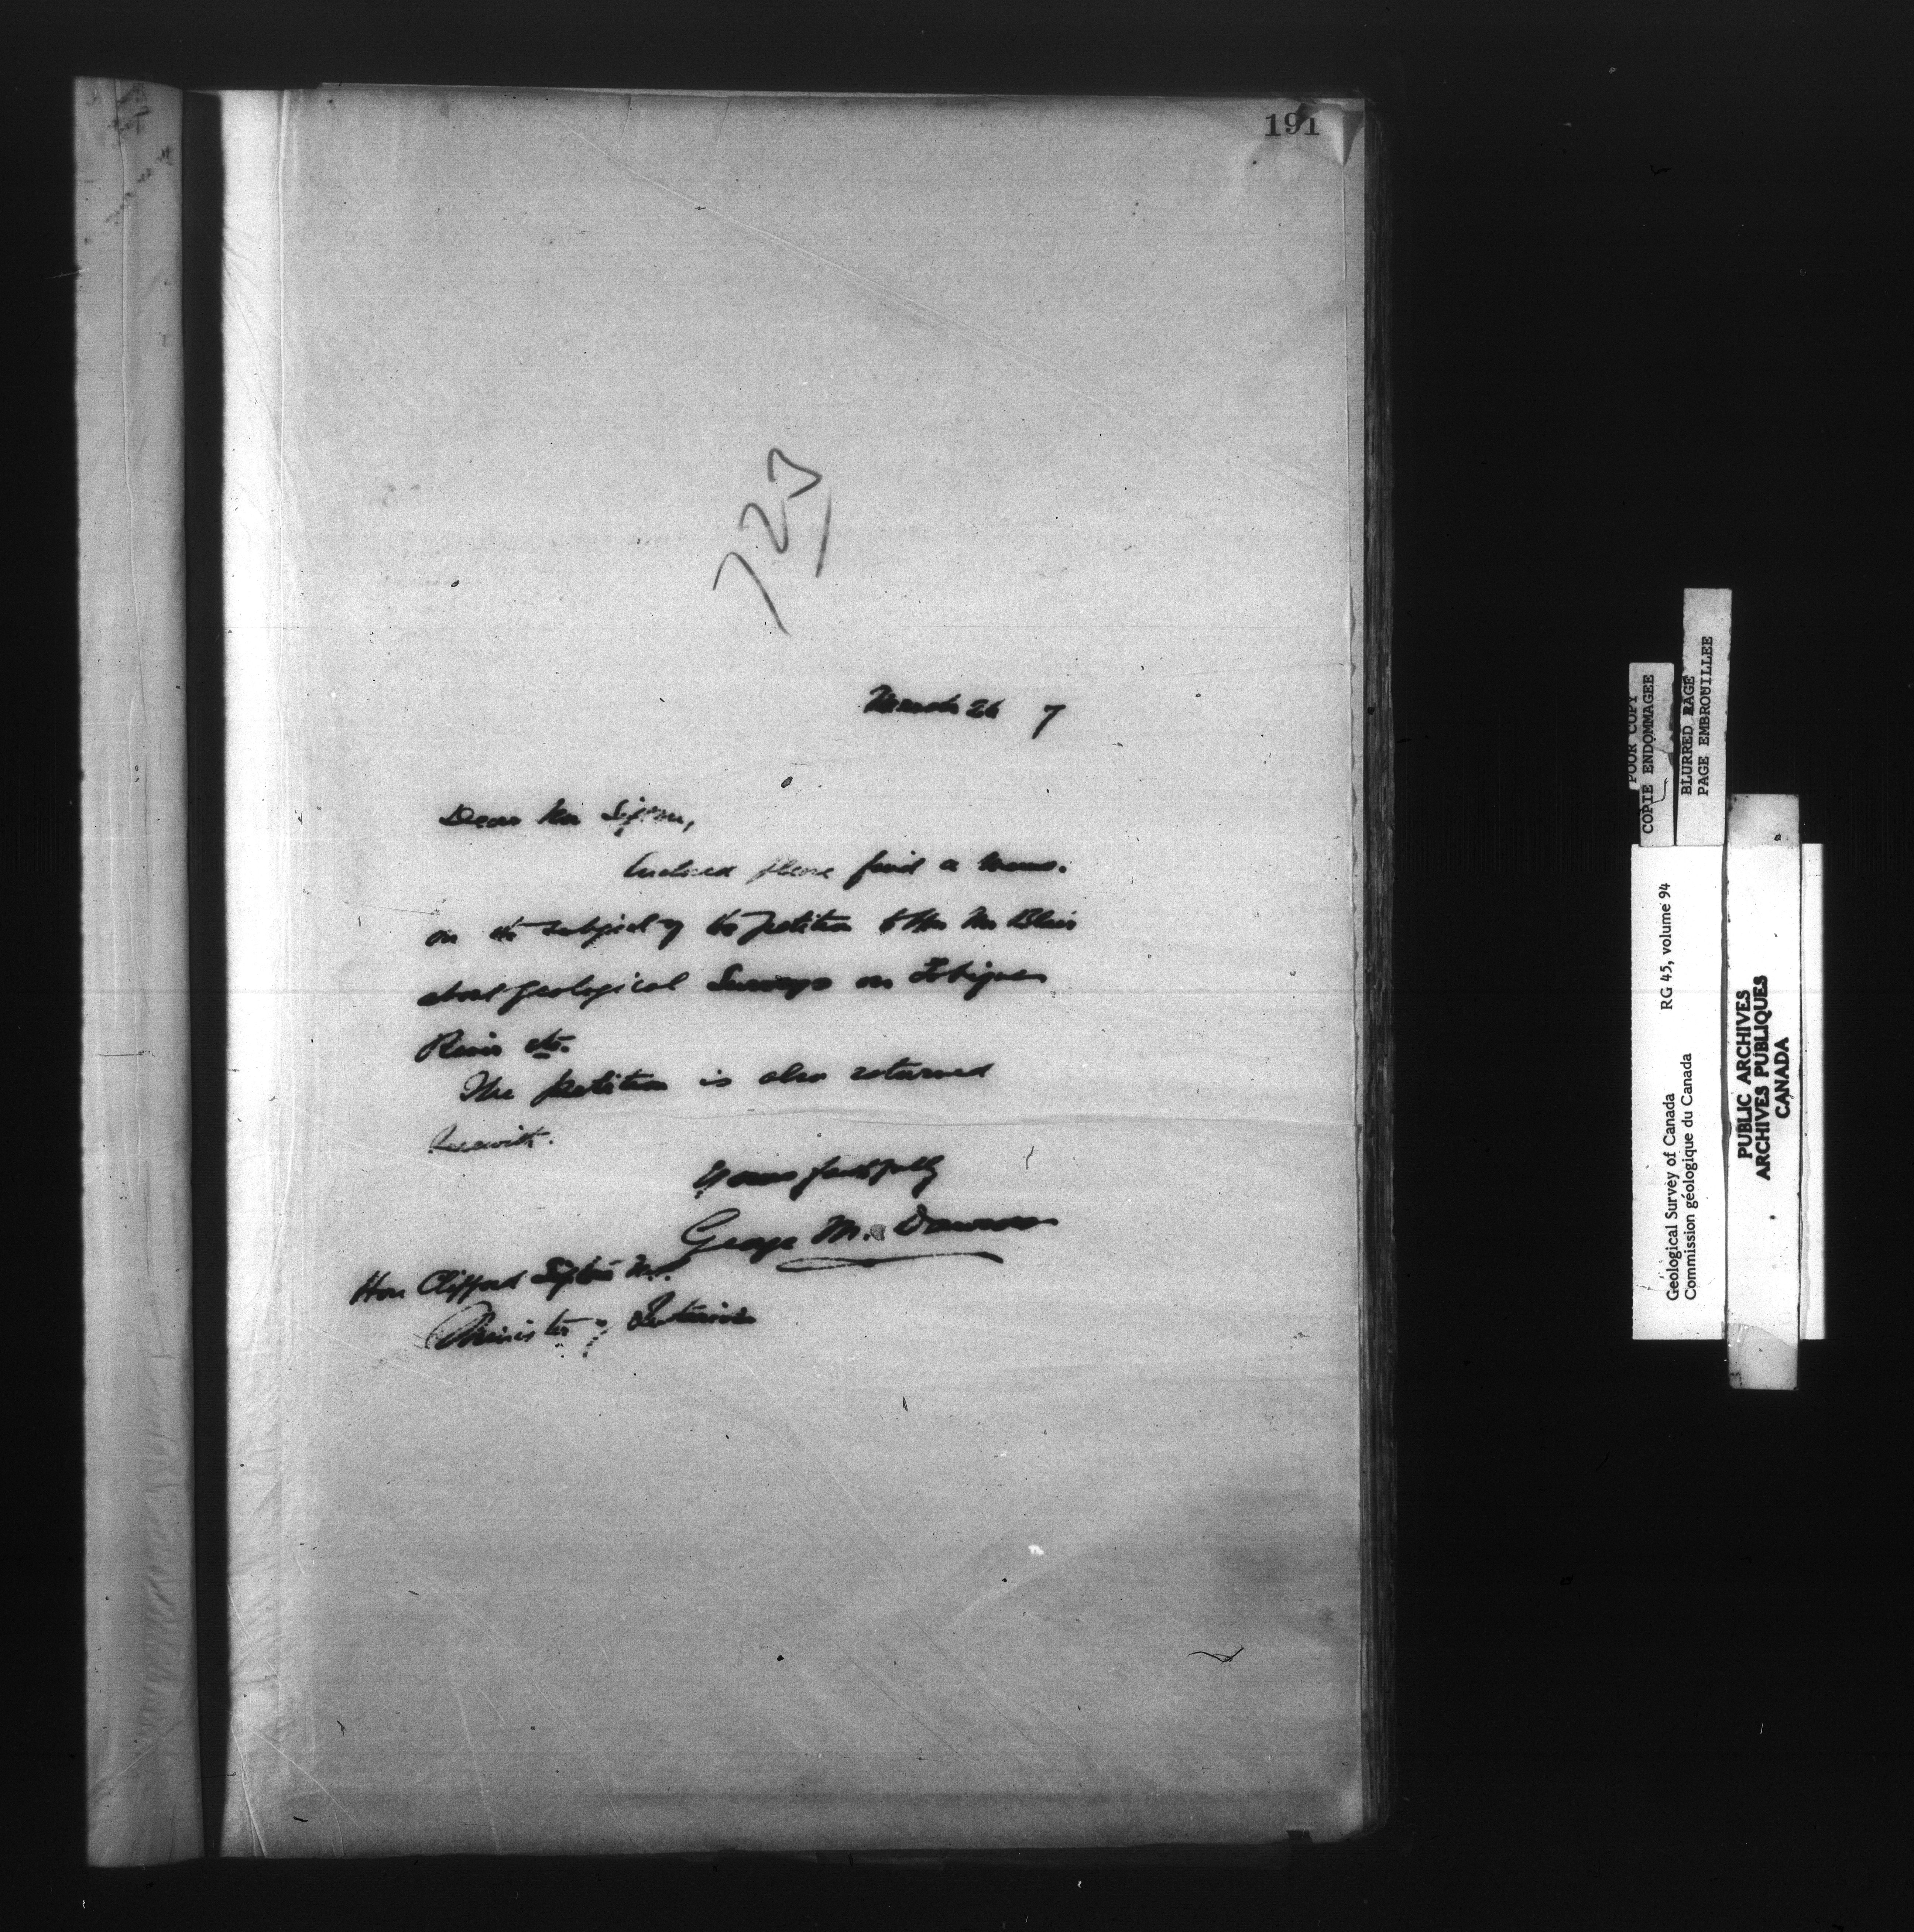 191
723
March 26 7
Dear Mr Sifton,
Enclosed please find a memo.
on the subject of the petition to Hon Mr Blair
about geological Surveys on Tobique
River etc.
The petition is also returned
herewith.
Yours faithfully
George M. Dawson
Hon Clifford Sifton M.P.
Minister of Interior
POOR COPY
COPIE ENDOMMAGEE
BLURRED PAGE
PAGE EMBROUILLEE
Geological Survey of Canada RG 45, volume 94
Commission géologique du Canada
PUBLIC ARCHIVES
ARCHIVES PUBLIQUES
CANADA